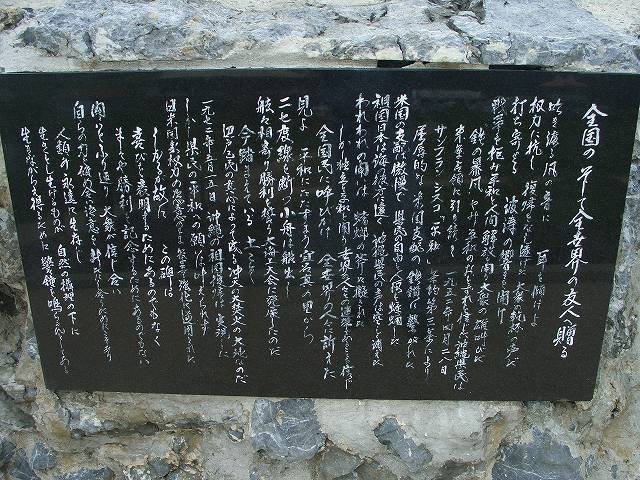 全国の そして全世界の友人へ贈る
吹き渡る風の音に 耳を傾けよ
権力に抗し 復帰をなし遂げた 大衆の乾杯の声だ
打ち寄せる 波濤の響きを聞け
戦争を拒み平和と人間解放を闘う大衆の雄叫びだ
鉄の暴風やみ平和のおとずれを信じた沖縄県民は
米軍占領に引き続き 一九五二年四月二八日
サンフランシスコ「平和」条約第三条により
屈辱的な米国支配の鉄鎖に繋がれた
米国の支配は傲慢で 県民の自由と人権を蹂躙した
祖国日本は海の彼方に遠く 沖縄県民の声は空しく消えた
われわれの闘いは 蟷螂の斧に擬せられた
しかし独立と平和を闘う世界の人々との連帯あることを信じ
全国民に呼びかけ 全世界の人々に訴えた
見よ 平和にたたずまう宜名真の里から
二七度線を断つ小舟は船出し
舷々相寄り勝利を誓う大海上大会に発展したのだ
今踏まれている 土こそ
辺戸区民の真心によって成る沖天の大焚火の大地なのだ
一九七二年五月一五日 沖縄の祖国復帰は実現した
しかし県民の平和への願いは叶えられず
日米国家権力の恣意のまま軍事強化に逆用された
しかるが故に この碑は
喜びを表明するためにあるのでもなく
ましてや勝利を記念するためにあるのでもない
闘いをふり返り 大衆が信じ合い
自らの力を確め合い決意を新たにし合うためにこそあり
人類が 永遠に生存し
生きとし生けるものが 自然の摂理の下に
生きながらえ得るために 警鐘を鳴らさんとしてある